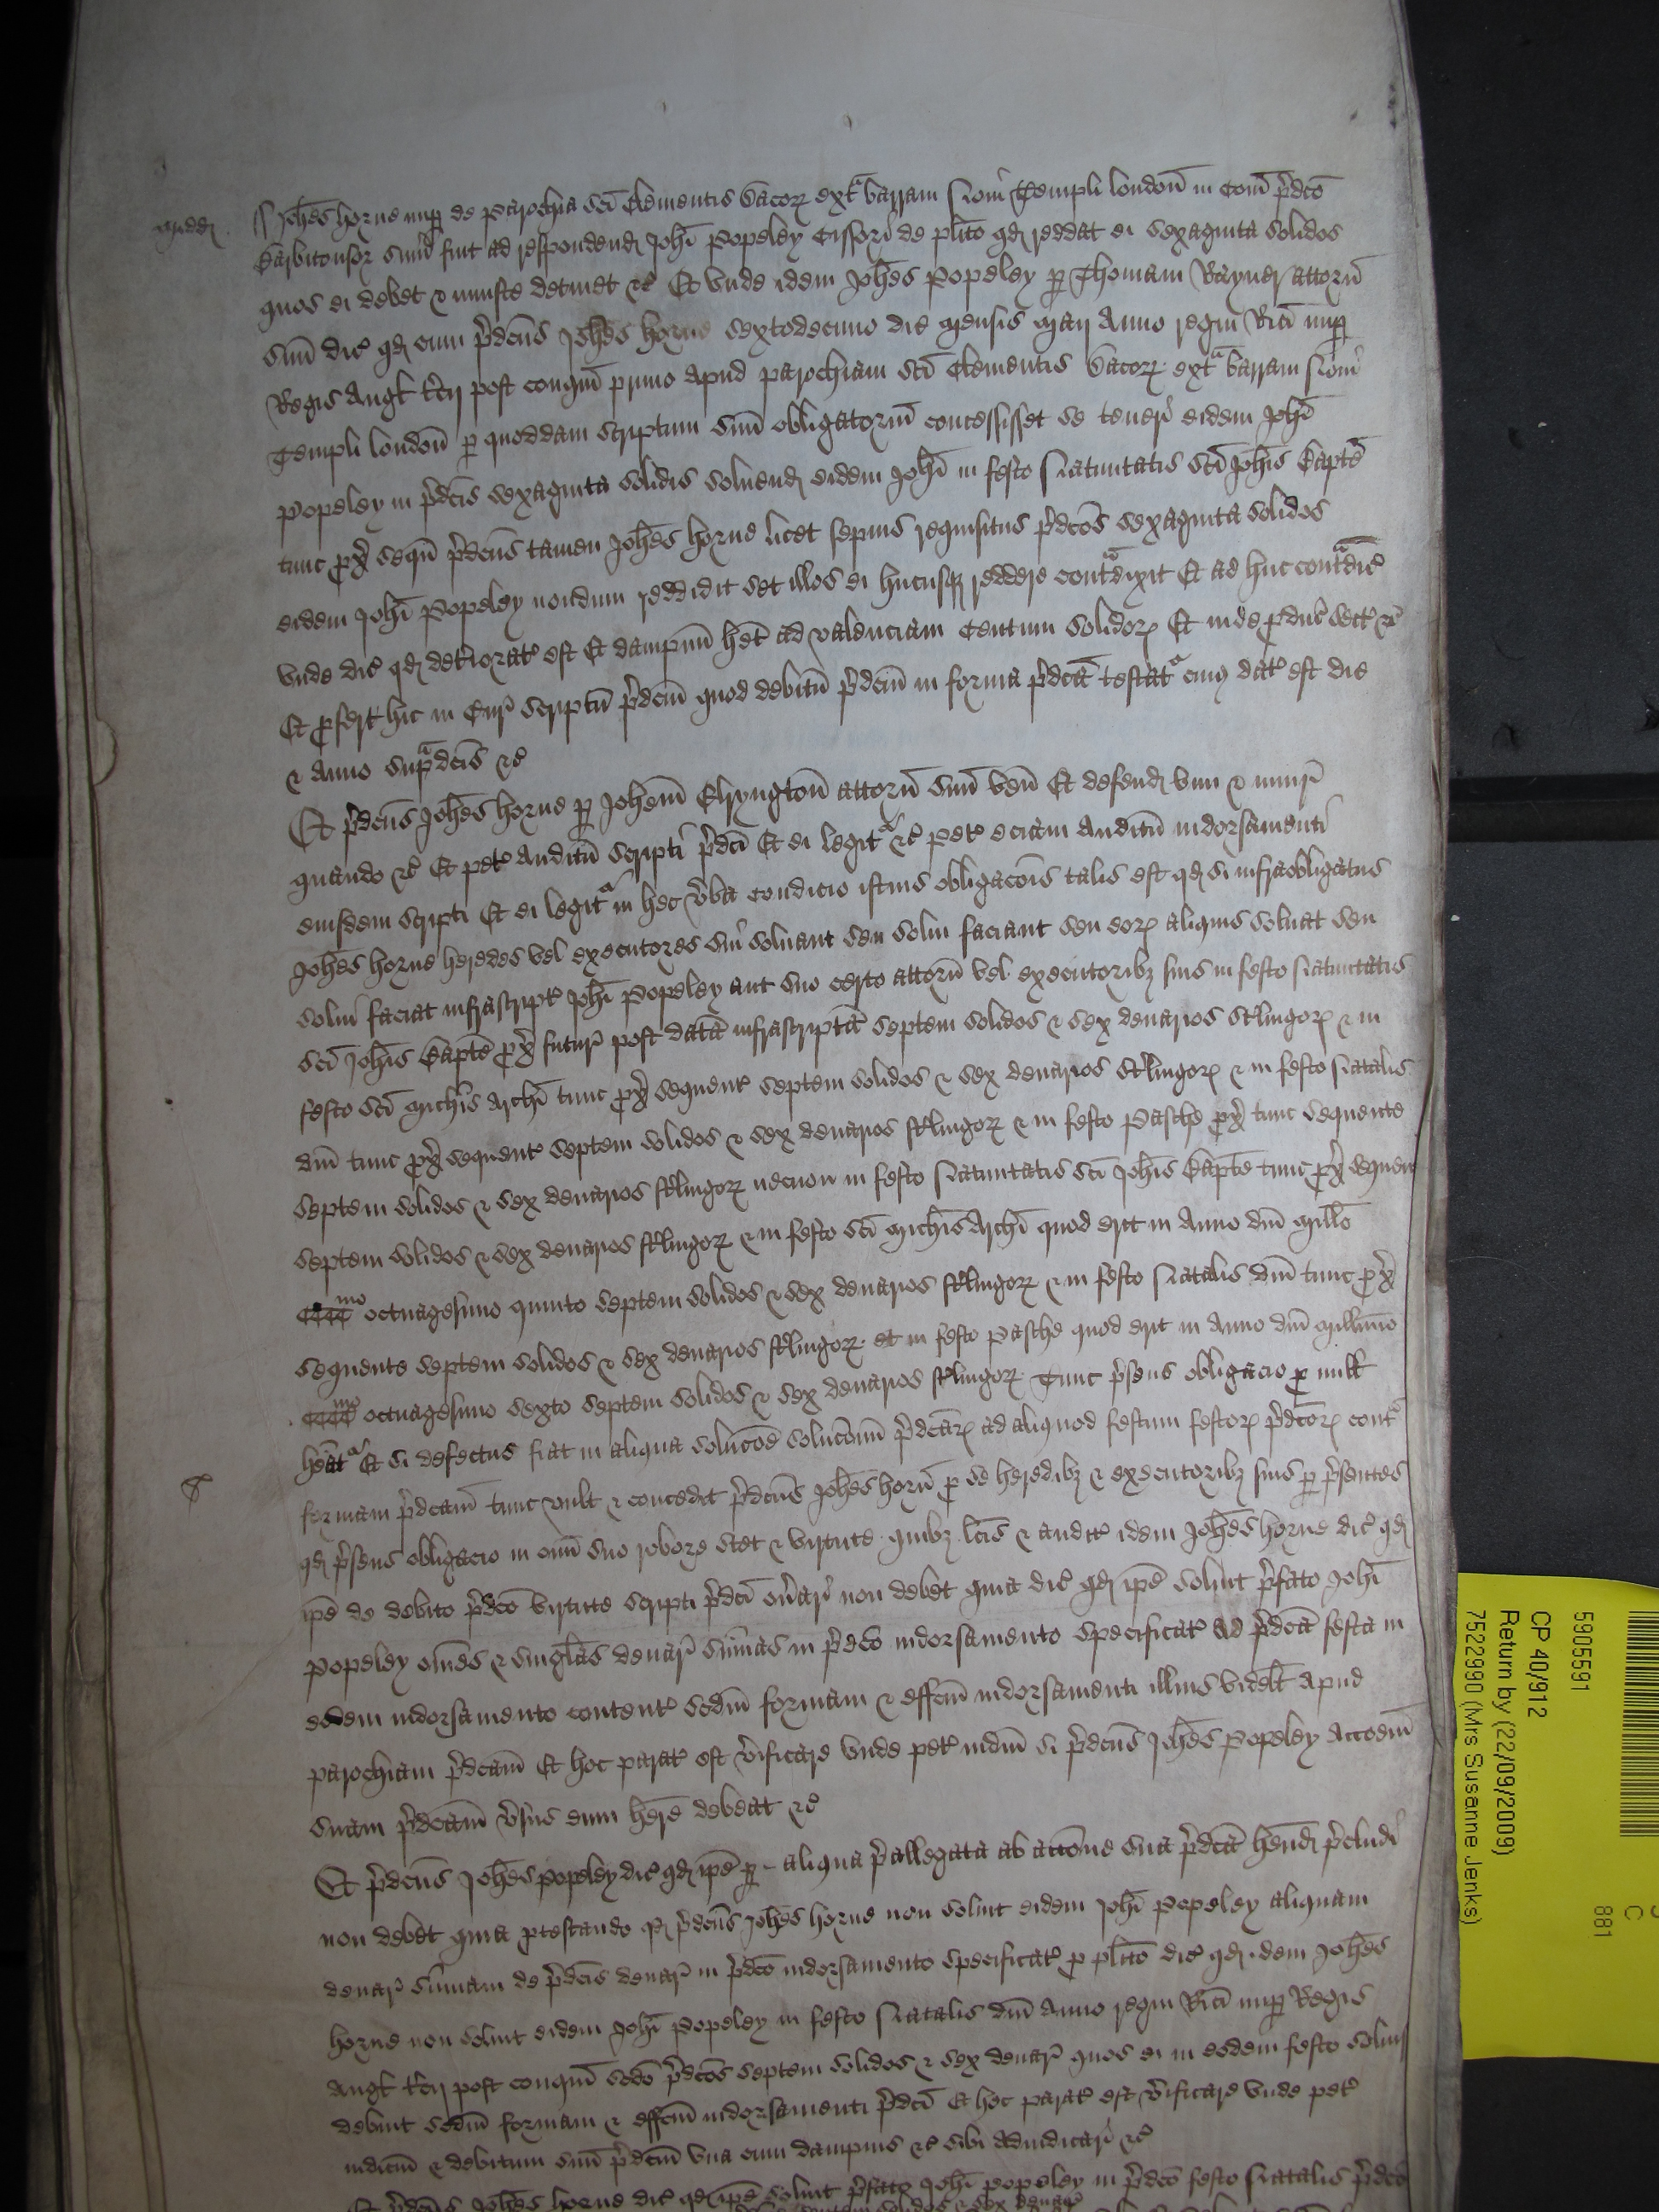 Midd
Johes Horne nup de parochia sci Clementis Dacor ext barram Novi Templi london in Com pdco
Barbitonsor sum fuit ad respondend Johi Popeley Cissori de plito qd reddat ei sexaginta solidos
quos ei debet & iniuste detinet &c Et unde idem Johes Popeley p Thomam Rayner attorn
suu dic qd cum pdcus Johes Horne sextodecimo die mensis Maij Anno regni Rici nup
Regis Angl tcij post conqm primo apud parochiam sci Clementis Dacor ext barram Novi
Templi london p quoddam scriptum suu obligatoriu concessisset se teneri eidem Johi
Popeley in pdcis sexaginta solidis solvend eidem Johi in festo Nativitatis sci Johis Bapte
tunc px sequ pdcus tamen Johes Horne licet sepius requisitus pdcos sexaginta solidos
eidem Johi Popeley nondum reddidit set illos ei hucusq reddere contadixit Et ad huc contadic
unde dic qd deteriorat est Et dampnu het ad valenciam Centum solidor Et inde pduc sect &c
Et pfert hic in Cur scriptu pdcm quod debitu pdcm in forma pdca testat cuius dat est die
& Anno supadcis &c
Et pdcus Johes Horne p Johem Elryngton attorn suu ven Et defend vim & iniur
quando &c Et pet auditu scripti pdci Et ei legit &c pet eciam auditu indorsamenti
eiusdem scripti Et ei legit in hec vba Condicio istius obligacois talis est qd si infraobligatus
Johes Horne heredes vel executores sui solvant seu solvi faciant seu eor aliquis solvat seu
solvi faciat infrascript Johi Popeley aut suo certo attorn vel executoribz suis in festo Nativitatis
sci Johis Bapte px futur post data infrascripta septem solidos & sex denarios stlingor & in
festo sci Michis Archi tunc px sequent septem solidos & sex denarios stlingor & in festo Natalis
dni tunc px sequent septem solidos & sex denarios stlingor & in festo Pasche px tunc sequente
septem solidos & sex denarios stlingor necnon in festo Nativitatis sci Johis Bapte tunc px sequen
septem solidos & sex denarios stlingor & in festo sci Michis Archi quod erit in Anno dni Millo
CCCCmo octuagesimo quinto septem solidos & sex denarios stlingor & in festo Natalis dni tunc px
sequente septem solidos & sex denarios stlingor et in festo Pasche quod erit in Anno dni Millimo
CCCCmo octuagesimo sexto septem solidos & sex denarios stlingor Tunc psens obligacio p null
heat Et si defectus fiat in aliqua solucoe solucionu pdcar ad aliquod festum festor pdcor cont
formam pdcam tunc vult & concedit pdcus Johes Horn p se heredibz & executoribz suis p psentes
qd psens obligacio in omi suo robore stet & virtute quibz lcis & audit idem Johes Horne dic qd
ipe de debito pdco virtute scripti pdci onari non debet quia dic qd ipe solvit pfato Johi
Popeley omes & singlas denar sumas in pdco indorsamento specificat ad pdca festa in
eodem indorsamento content scdm formam & effcm indorsamenti illius videlt apud
parochiam pdcam Et hoc parat est vificare unde pet iudm si pdcus Johes Popeley accoem
suam pdcam vsus eum here debeat &c
Et pdcus Johes Popeley dic qd ipe p aliqua pallegata ab accone sua pdca hend pcludi
non debet quia ptestando qd pdcus Johes Horne non solvit eidem Johi Popeley aliquam
denar sumam de pdcis denar in pdco indorsamento specificat p plito dic qd idem Johes
Horne non solvit eidem Johi Popeley in festo Natalis dni Anno regni Rici nup Regis
Angl tcij post conqm scdo pdcos septem solidos & sex denar quos ei in eodem festo solvis
debuit scdm formam & effcm indorsamenti pdci Et hoc parat est vificare unde pet
iudiciu & debitum suu pdcm una cum dampnis &c sibi adiudicari &c
Et pdcus Johes Horne dic qd ipe solvit pfato Johi Popeley in pdco festo Natalis pdco
5905591
CP 40/912
Return by (22/09/2009)
7522990 (Mrs Susanne Jenks)
C
881